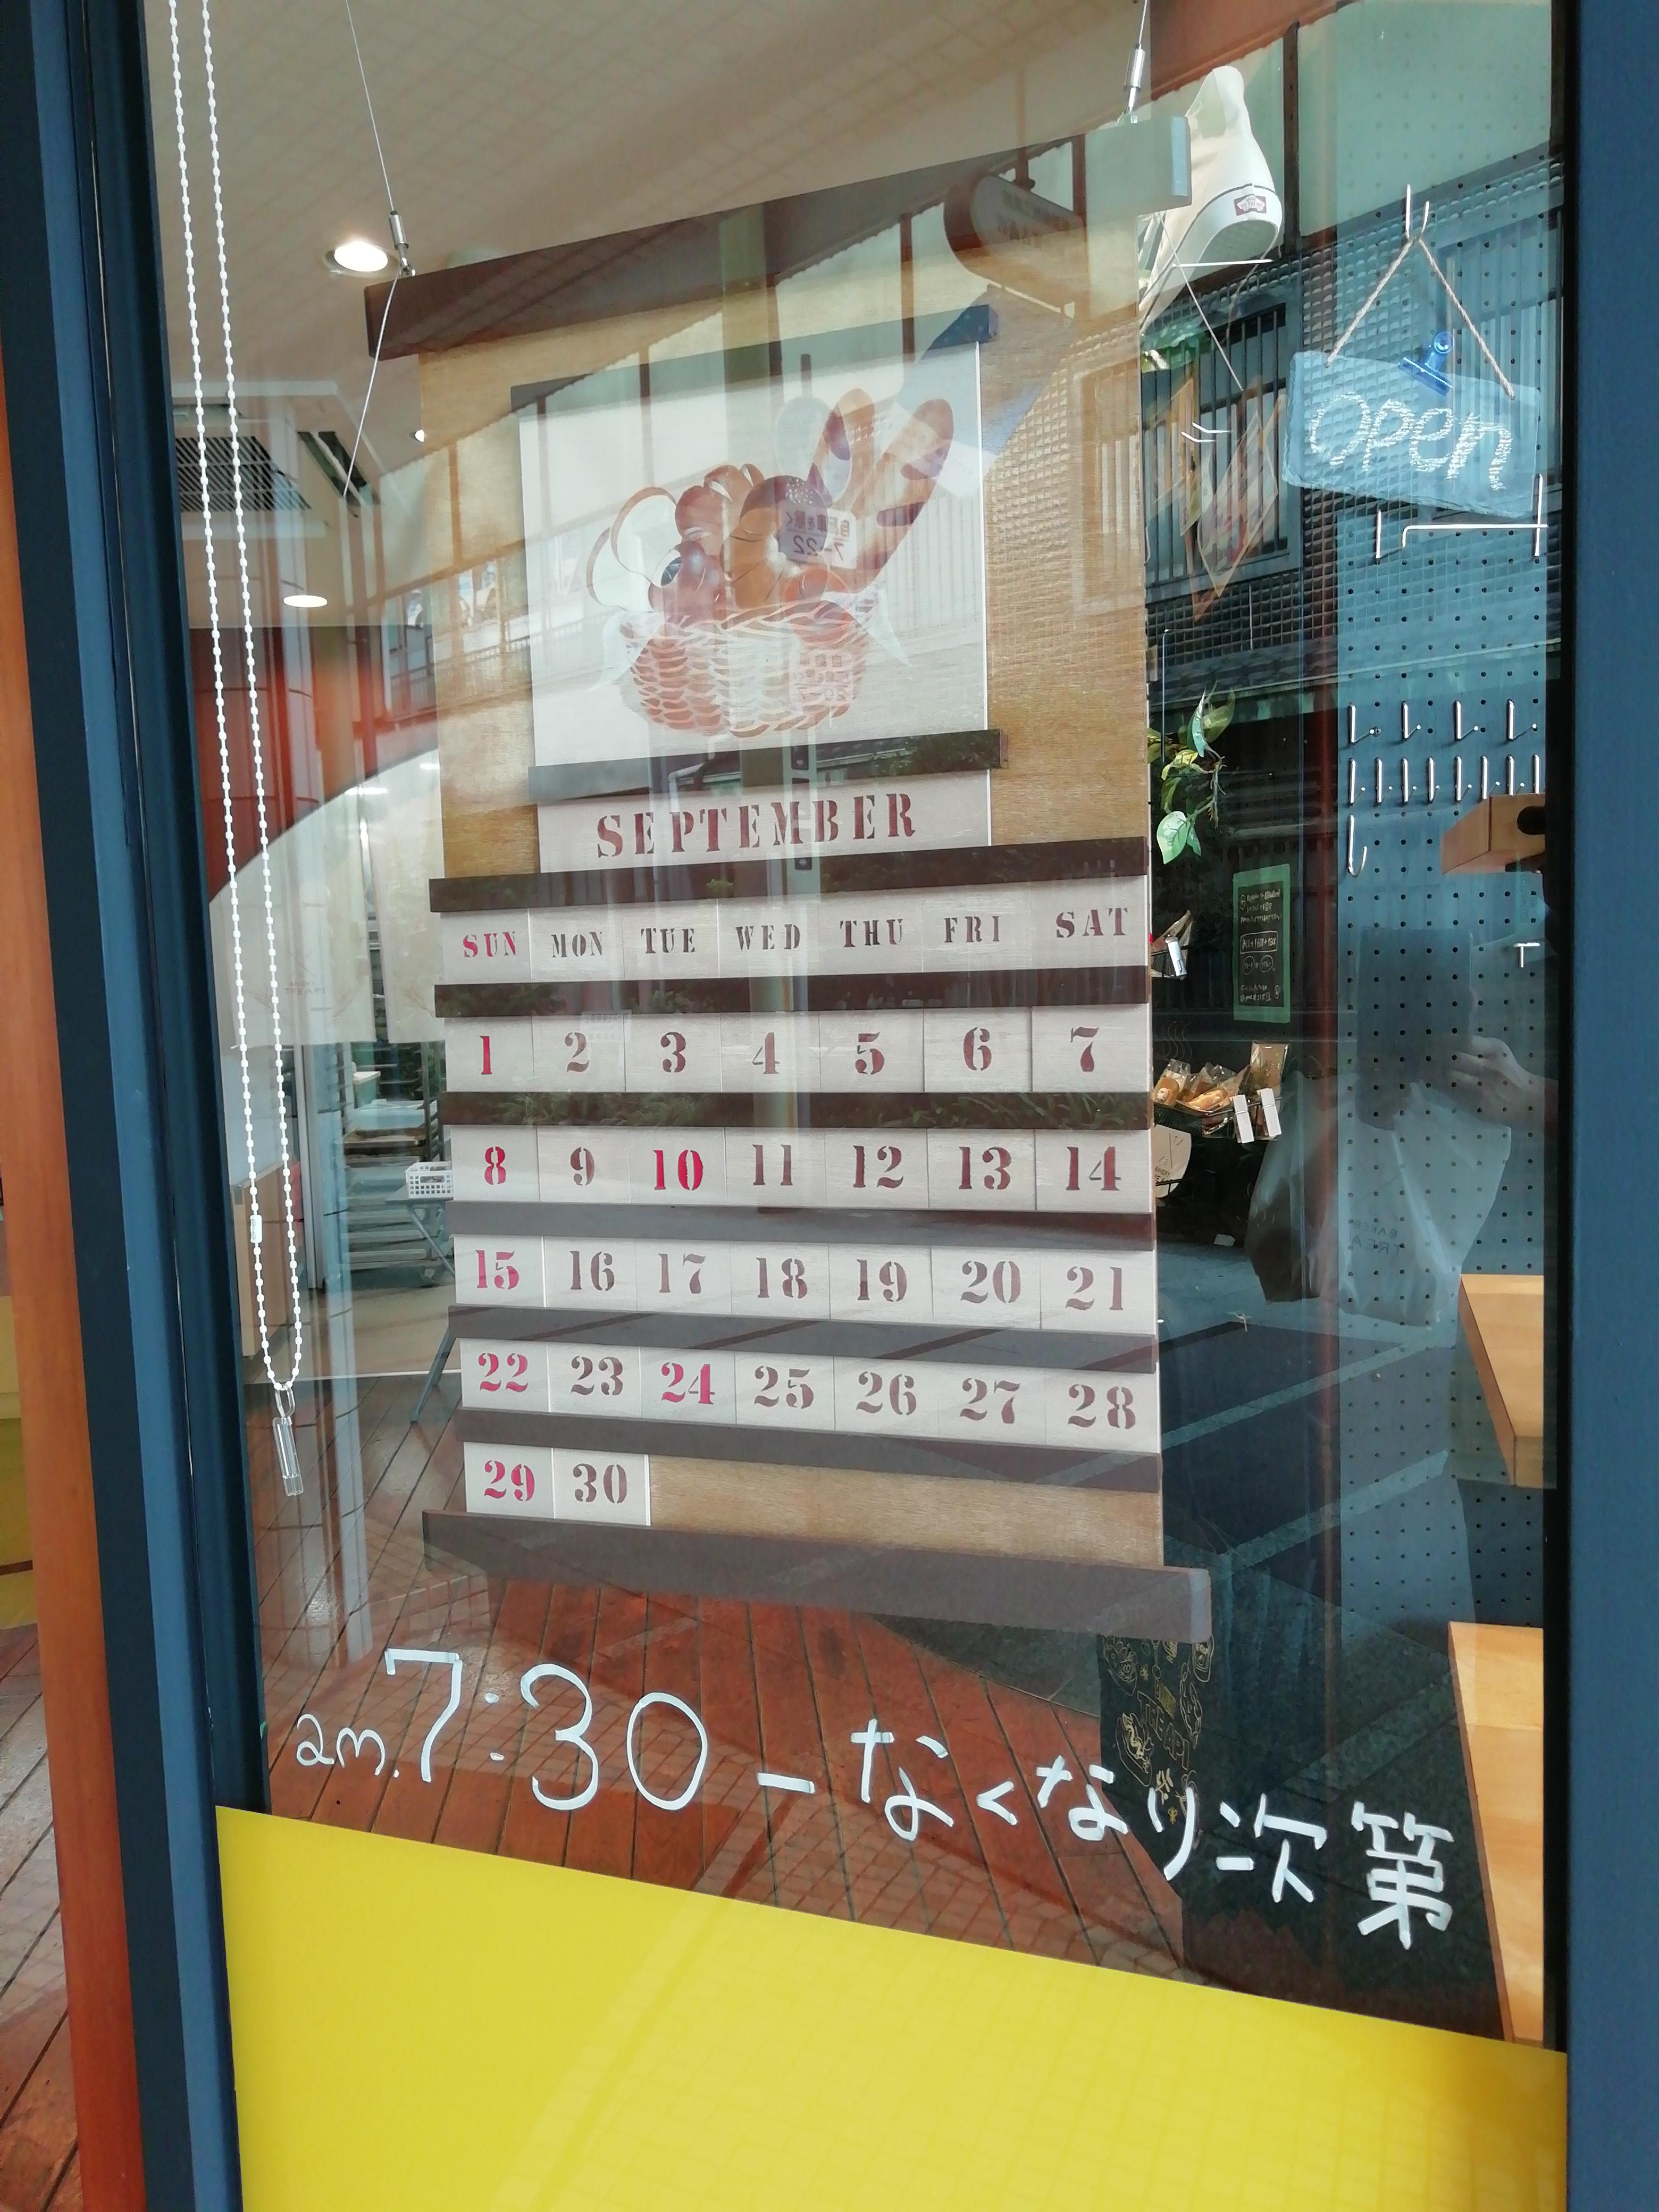 open
SEPTEMBER
SUN MON TUE WED THU FRI SAT
1 2 3 4 5 6 7
8 9 10 11 12 13 14
15 16 17 18 19 20 21
22 23 24 25 26 27 28
29 30
am.7:30 ー なくなり次第